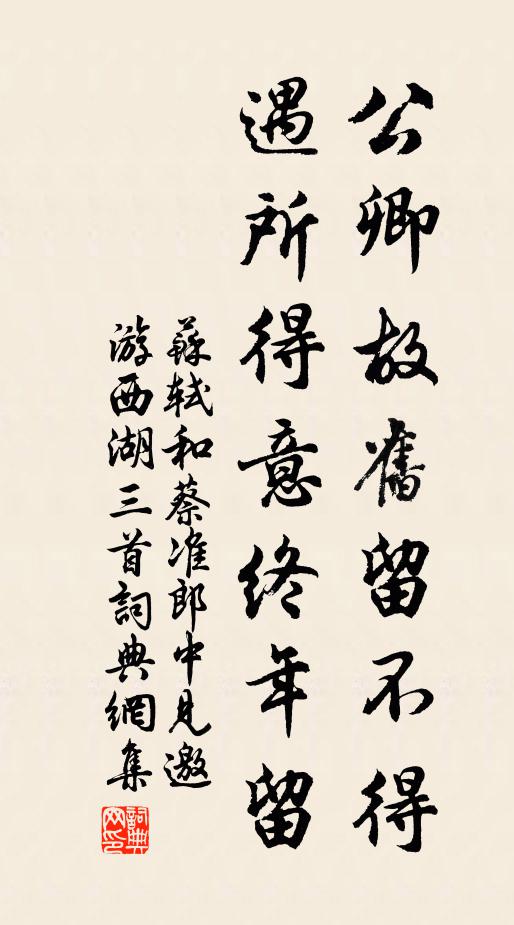 公卿故舊留不得
遇所得意終年留
蘇軾和蔡準郎中見邀
游西湖三首詞典網集
詞典
网印